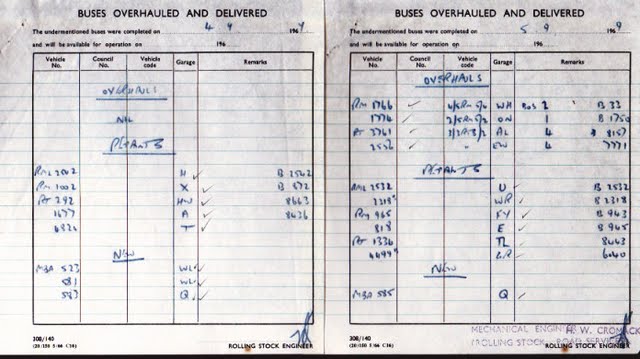 BUSES OVERHAULED AND DELIVERED
The undermentioned buses were completed on 4 9 1969
and will be available for operation on 196
Vehicle No. Council No. Vehicle code Garage Remarks
OVERHAULS
NIL
REPAINTS
H ✓ B 2542
RM 1002 X ✓ B 872
RT 292 HW ✓ 8663
1677 A ✓ 8636
T ✓
NEW
MBA 523 WL ✓
581 WL ✓
583 Q ✓
308/140
(20/150 5/66 C16)
ROLLING STOCK ENGINEER
BUSES OVERHAULED AND DELIVERED
The undermentioned buses were completed on 5 9 1969
and will be available for operation on 196
Vehicle No. Council No. Vehicle code Garage Remarks
OVERHAULS
RM 1766 ✓ WH 2 B 33
1774 ✓ ON 1 B 1750
RT 3761 ✓ AL 4 8157
✓ EW 4 7771
REPAINTS
RML 2532 U ✓ B 2532
2318 WR ✓ B 2318
RM 965 FY ✓ B 943
818 E ✓ B 965
RT 1336 TL ✓ 8443
4499 GR ✓ 6040
NEW
MBA 585 Q ✓
MECHANICAL ENGINEER
H. W. CROMACK
(ROLLING STOCK) ROAD SERVICES
308/140
(20/150 5/66 C16)
ROLLING STOCK ENGINEER